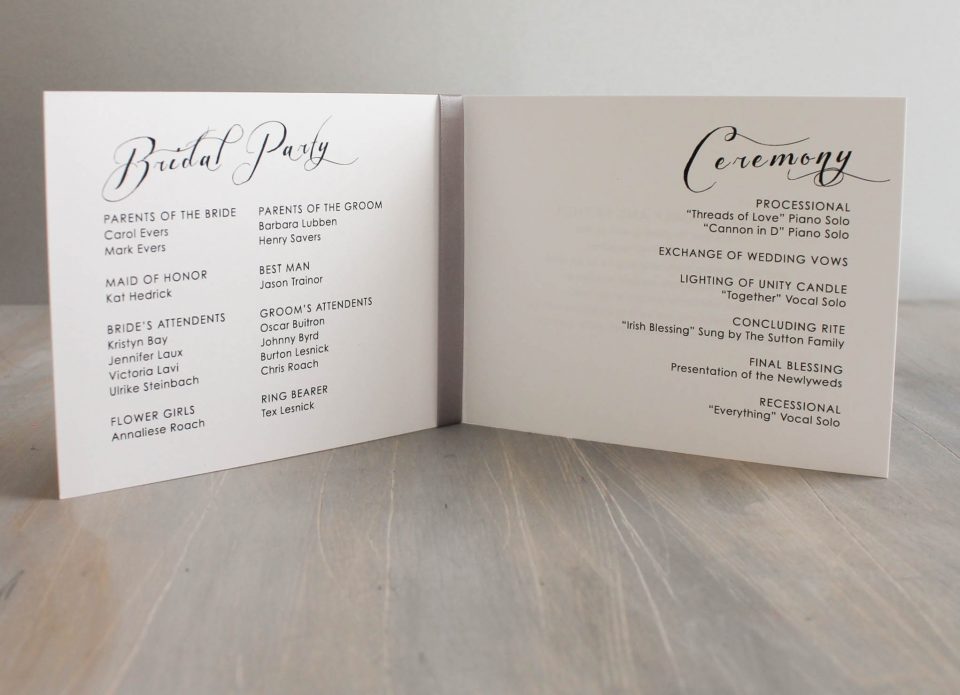 Bridal Party
PARENTS OF THE BRIDE
Carol Evers
Mark Evers
MAID OF HONOR
Kat Hedrick
BRIDE'S ATTENDENTS
Kristyn Bay
Jennifer Laux
Victoria Lavi
Ulrike Steinbach
FLOWER GIRLS
Annaliese Roach
PARENTS OF THE GROOM
Barbara Lubben
Henry Savers
BEST MAN
Jason Trainor
GROOM'S ATTENDENTS
Oscar Buitron
Johnny Byrd
Burton Lesnick
Chris Roach
RING BEARER
Tex Lesnick
Ceremony
PROCESSIONAL
"Threads of Love" Piano Solo
"Cannon in D" Piano Solo
EXCHANGE OF WEDDING VOWS
LIGHTING OF UNITY CANDLE
"Together" Vocal Solo
CONCLUDING RITE
"Irish Blessing" Sung by The Sutton Family
FINAL BLESSING
Presentation of the Newlyweds
RECESSIONAL
"Everything" Vocal Solo